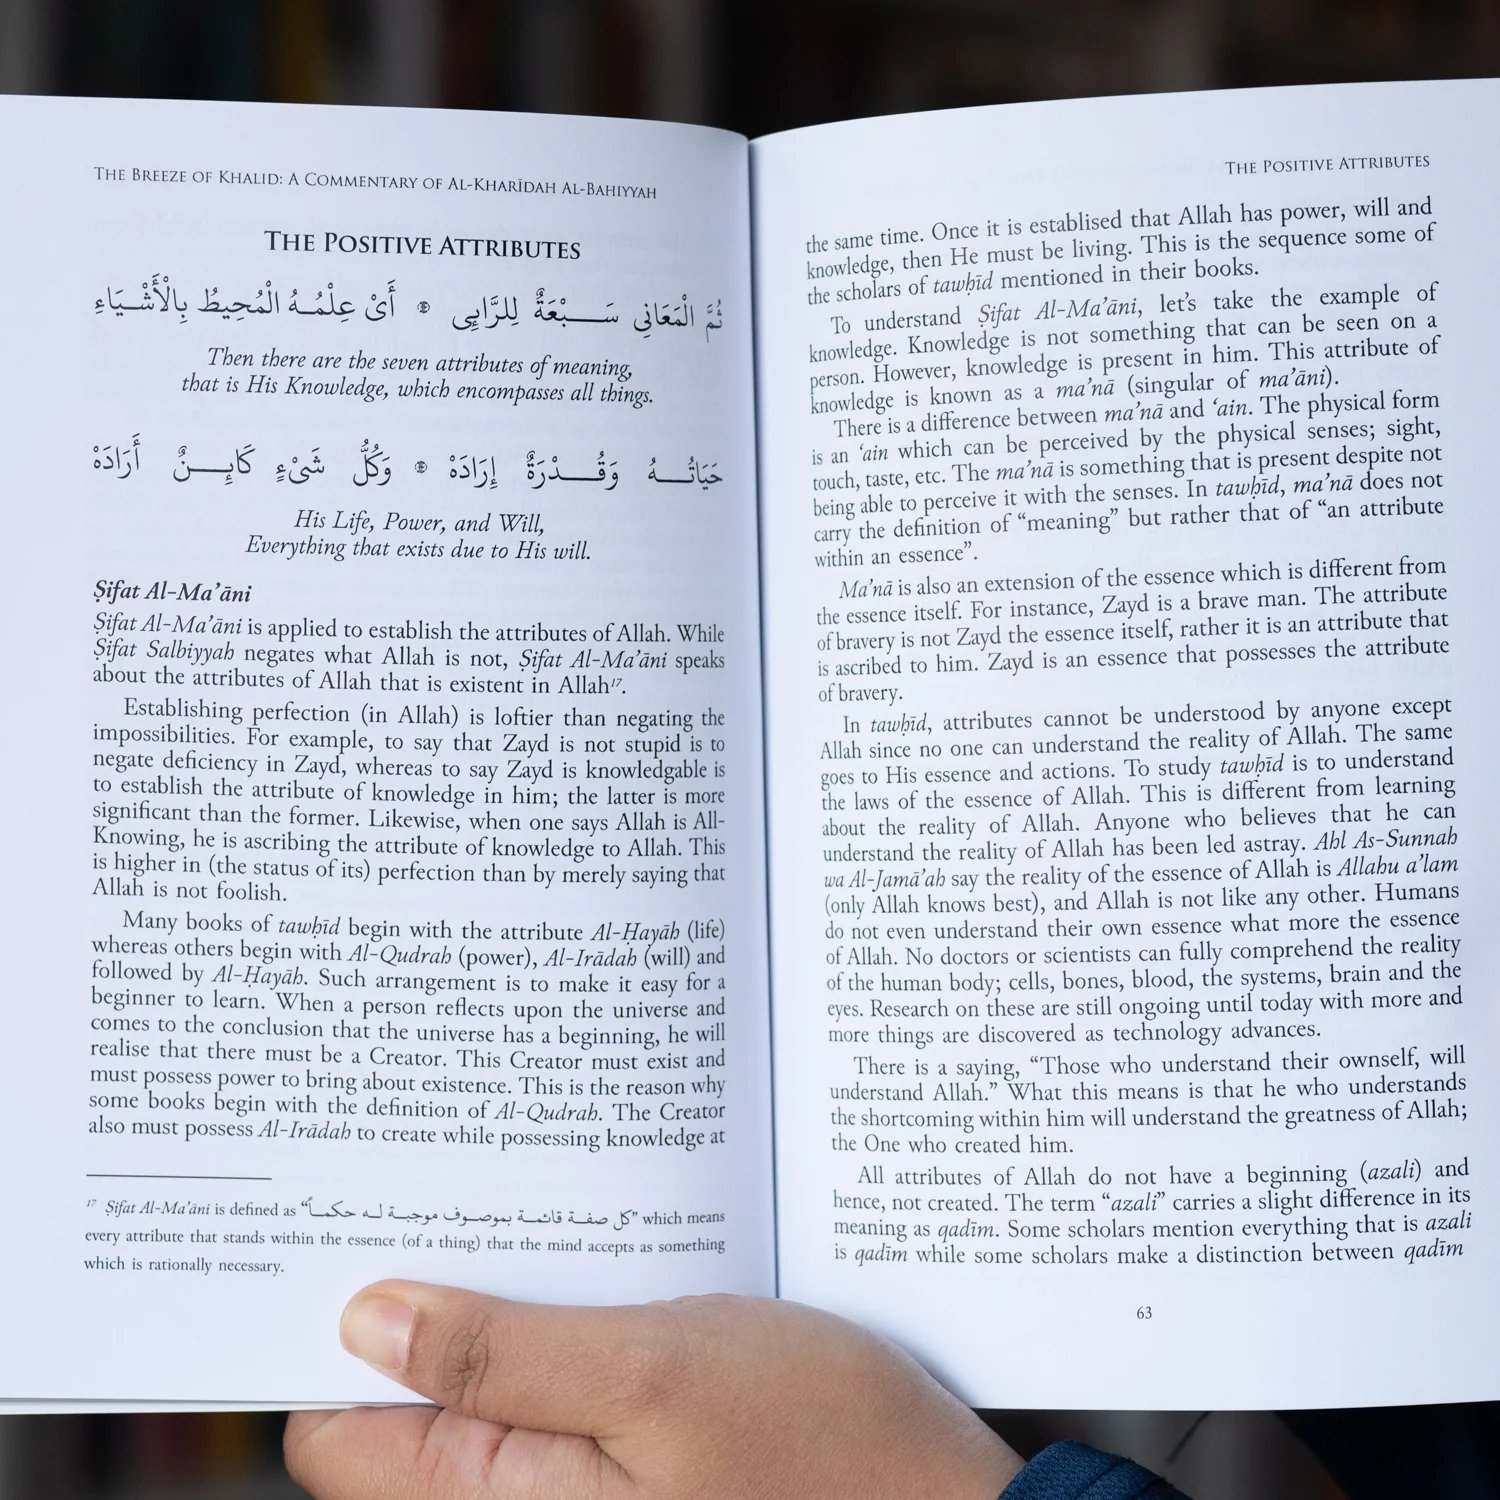 THE BREEZE OF KHALID: A COMMENTARY OF AL-KHARĪDAH AL-BAHIYYAH
THE POSITIVE ATTRIBUTES
ثُمَّ الْمَعَانِي سَـــبْعَةٌ لِلرَّايِى ۞ أَىْ عِلْمُـهُ الْمُحِيطُ بِالْأَشْـيَاءِ
Then there are the seven attributes of meaning,
that is His Knowledge, which encompasses all things.
حَيَاتُـــهُ وَقُـــدْرَةٌ إِرَادَهْ ۞ وَكُلُّ شَىْءٍ كَايِــــنٌ أَرَادَهْ
His Life, Power, and Will,
Everything that exists due to His will.
Ṣifat Al-Ma’āni
Ṣifat Al-Ma’āni is applied to establish the attributes of Allah. While
Ṣifat Salbiyyah negates what Allah is not, Ṣifat Al-Ma’āni speaks
about the attributes of Allah that is existent in Allah¹⁷.
Establishing perfection (in Allah) is loftier than negating the
impossibilities. For example, to say that Zayd is not stupid is to
negate deficiency in Zayd, whereas to say Zayd is knowledgable is
to establish the attribute of knowledge in him; the latter is more
significant than the former. Likewise, when one says Allah is All-
Knowing, he is ascribing the attribute of knowledge to Allah. This
is higher in (the status of its) perfection than by merely saying that
Allah is not foolish.
Many books of tawḥīd begin with the attribute Al-Ḥayāh (life)
whereas others begin with Al-Qudrah (power), Al-Irādah (will) and
followed by Al-Ḥayāh. Such arrangement is to make it easy for a
beginner to learn. When a person reflects upon the universe and
comes to the conclusion that the universe has a beginning, he will
realise that there must be a Creator. This Creator must exist and
must possess power to bring about existence. This is the reason why
some books begin with the definition of Al-Qudrah. The Creator
also must possess Al-Irādah to create while possessing knowledge at
¹⁷ Ṣifat Al-Ma’āni is defined as “كل صفـة قائمـة بموصـوف موجبـة لـه حكمـاً” which means
every attribute that stands within the essence (of a thing) that the mind accepts as something
which is rationally necessary.
THE POSITIVE ATTRIBUTES
the same time. Once it is establised that Allah has power, will and
knowledge, then He must be living. This is the sequence some of
the scholars of tawḥīd mentioned in their books.
To understand Ṣifat Al-Ma’āni, let’s take the example of
knowledge. Knowledge is not something that can be seen on a
person. However, knowledge is present in him. This attribute of
knowledge is known as a ma’nā (singular of ma’āni).
There is a difference between ma’nā and ‘ain. The physical form
is an ‘ain which can be perceived by the physical senses; sight,
touch, taste, etc. The ma’nā is something that is present despite not
being able to perceive it with the senses. In tawḥīd, ma’nā does not
carry the definition of “meaning” but rather that of “an attribute
within an essence”.
Ma’nā is also an extension of the essence which is different from
the essence itself. For instance, Zayd is a brave man. The attribute
of bravery is not Zayd the essence itself, rather it is an attribute that
is ascribed to him. Zayd is an essence that possesses the attribute
of bravery.
In tawḥīd, attributes cannot be understood by anyone except
Allah since no one can understand the reality of Allah. The same
goes to His essence and actions. To study tawḥīd is to understand
the laws of the essence of Allah. This is different from learning
about the reality of Allah. Anyone who believes that he can
understand the reality of Allah has been led astray. Ahl As-Sunnah
wa Al-Jamā’ah say the reality of the essence of Allah is Allahu a’lam
(only Allah knows best), and Allah is not like any other. Humans
do not even understand their own essence what more the essence
of Allah. No doctors or scientists can fully comprehend the reality
of the human body; cells, bones, blood, the systems, brain and the
eyes. Research on these are still ongoing until today with more and
more things are discovered as technology advances.
There is a saying, “Those who understand their ownself, will
understand Allah.” What this means is that he who understands
the shortcoming within him will understand the greatness of Allah;
the One who created him.
All attributes of Allah do not have a beginning (azali) and
hence, not created. The term “azali” carries a slight difference in its
meaning as qadīm. Some scholars mention everything that is azali
is qadīm while some scholars make a distinction between qadīm
63